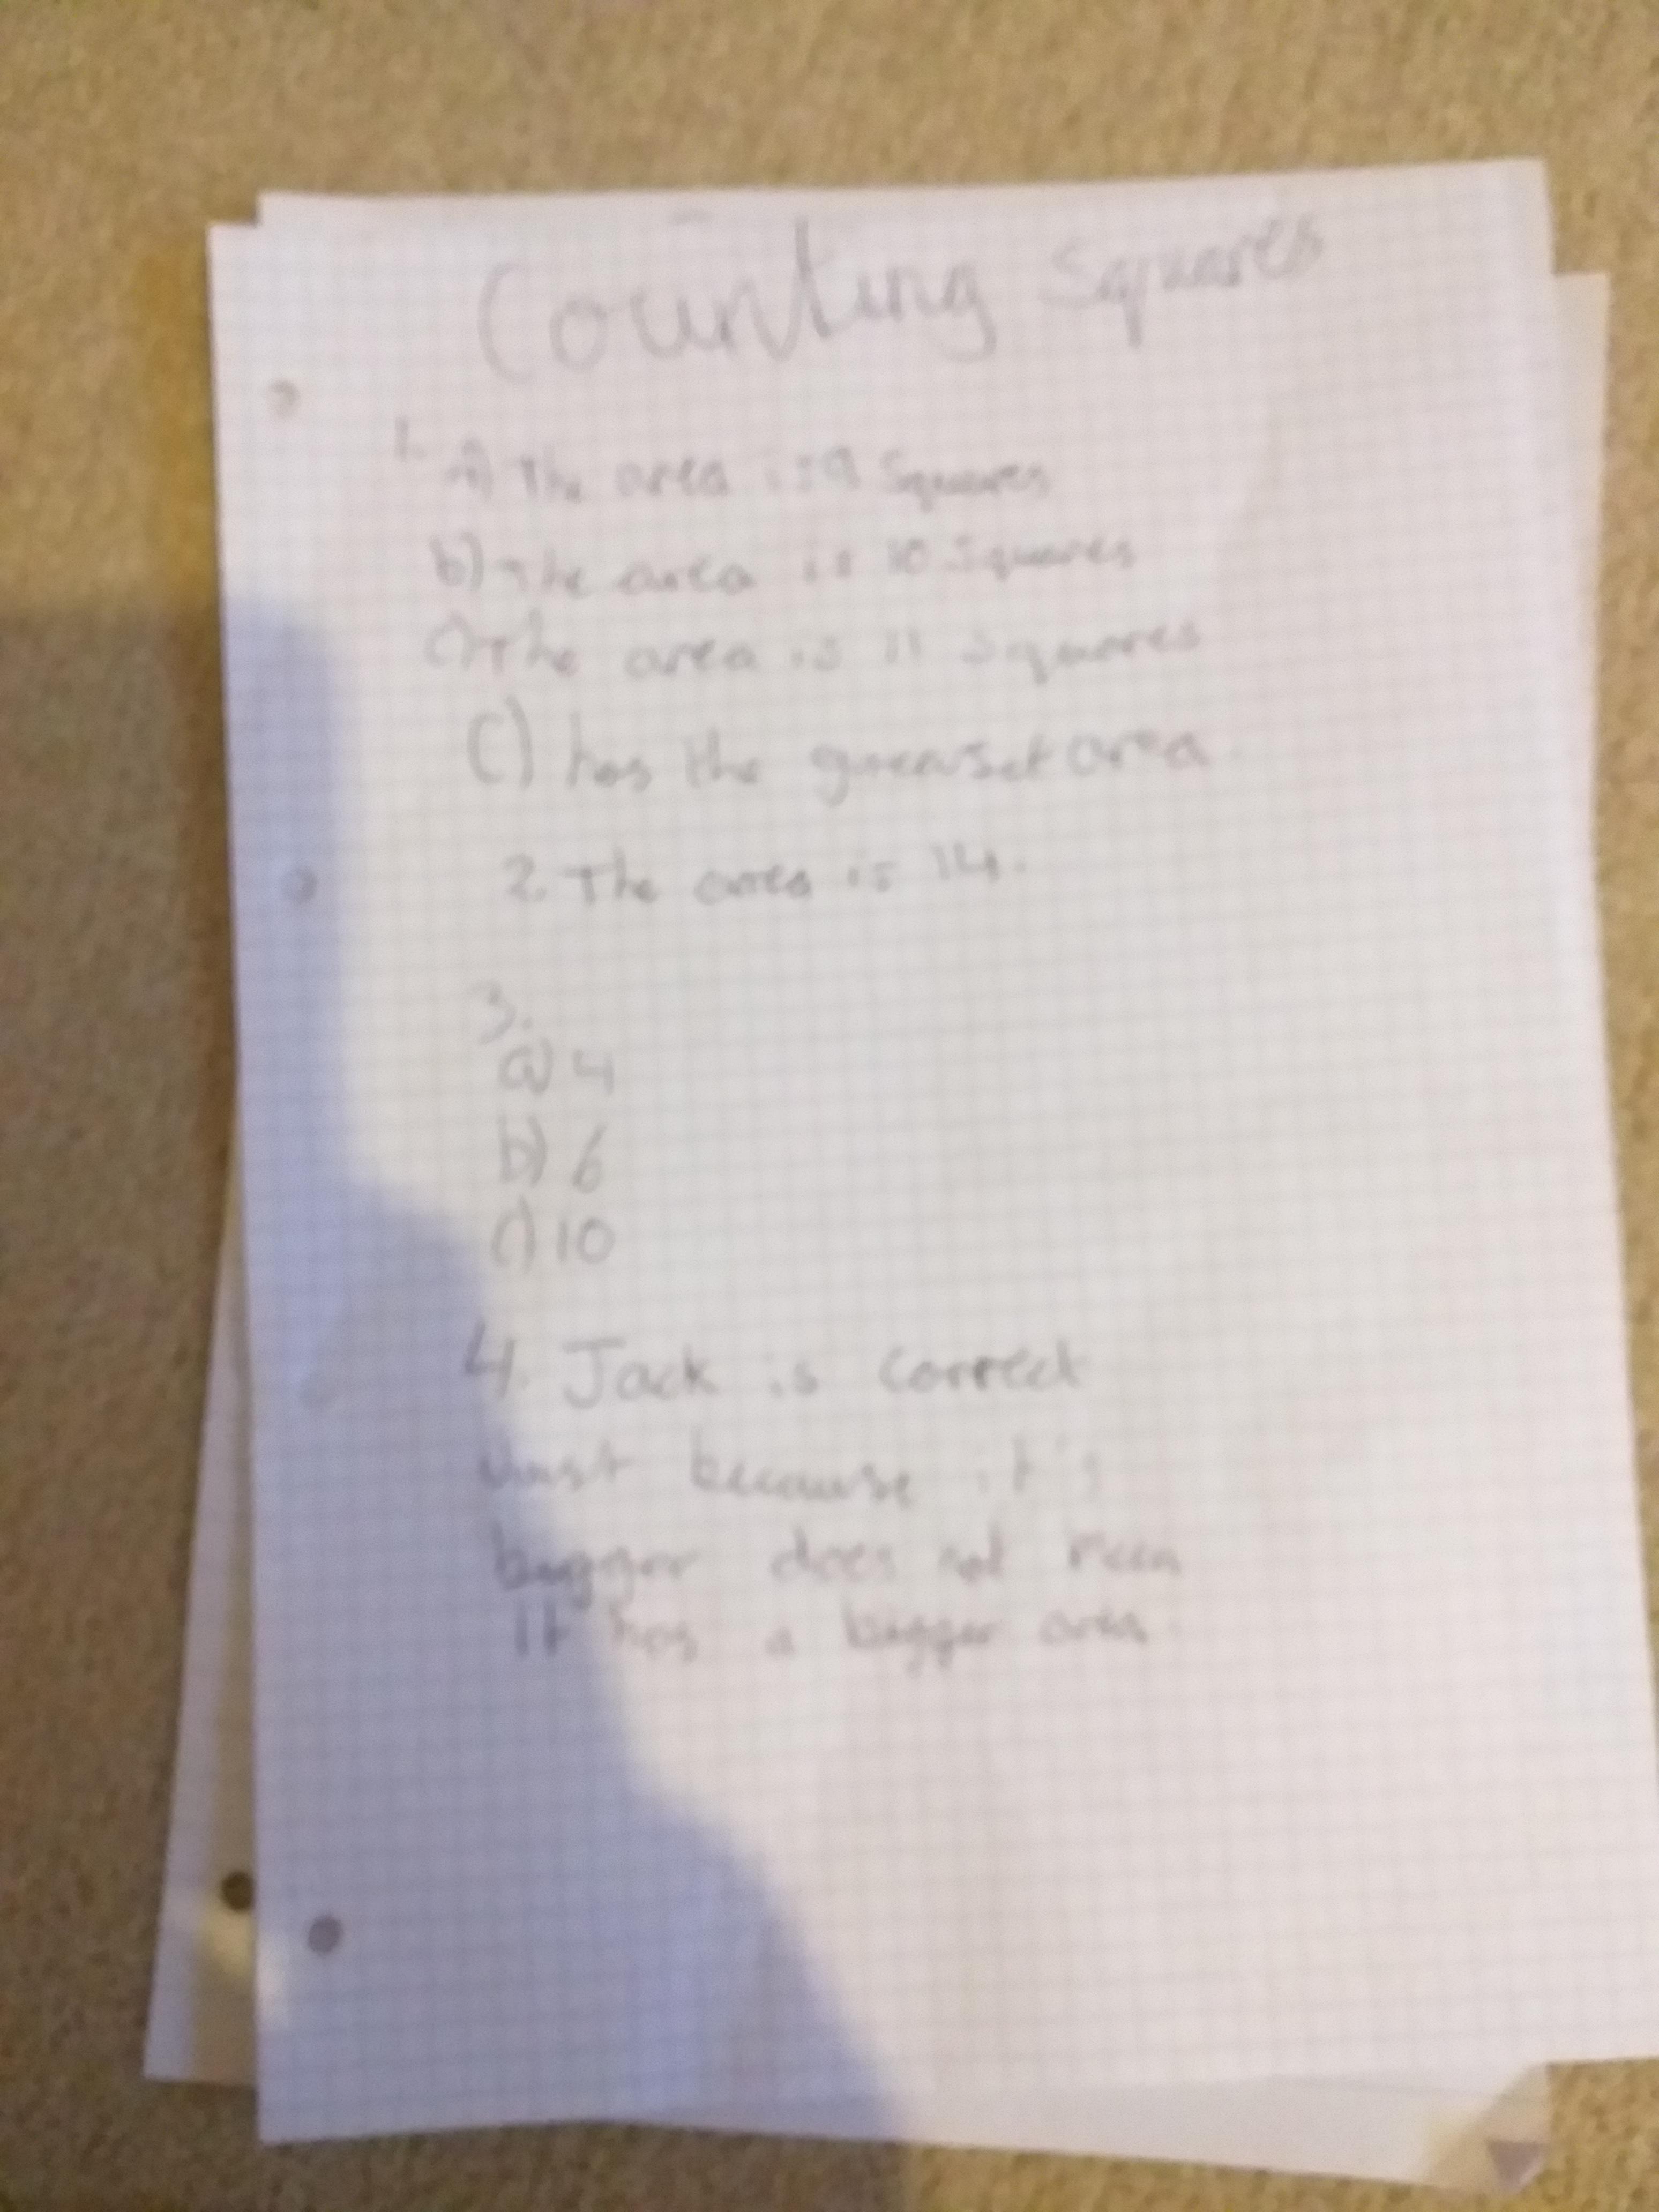 Counting Squares
1. a) The area is 9 Squares
b) The area is 10 Squares
c) The area is 11 squares
C) has the greatset area.
2. The area is 14.
3.
a) 4
b) 6
c) 10
4. Jack is correct
because it's
bigger does not mean
it has a bigger area.